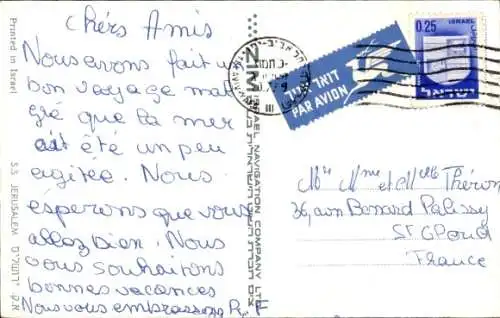 Chérs Amis
Nous avons fait un
bon voyage mal
gré que la mer
ait été un peu
agitée. Nous
éspérons que vous
allez bien. Nous
vous souhaitons
bonnes vacances
Nous vous embrassons P. F
Printed in Israel
S.S. JERUSALEM
ZIM ISRAEL NAVIGATION COMPANY LTD.
דואר אויר
PAR AVION
0.25 ISRAEL
ישראל
Mr Mme et Mlle Théron
36, avn Bernard Palissy
St Cloud
France